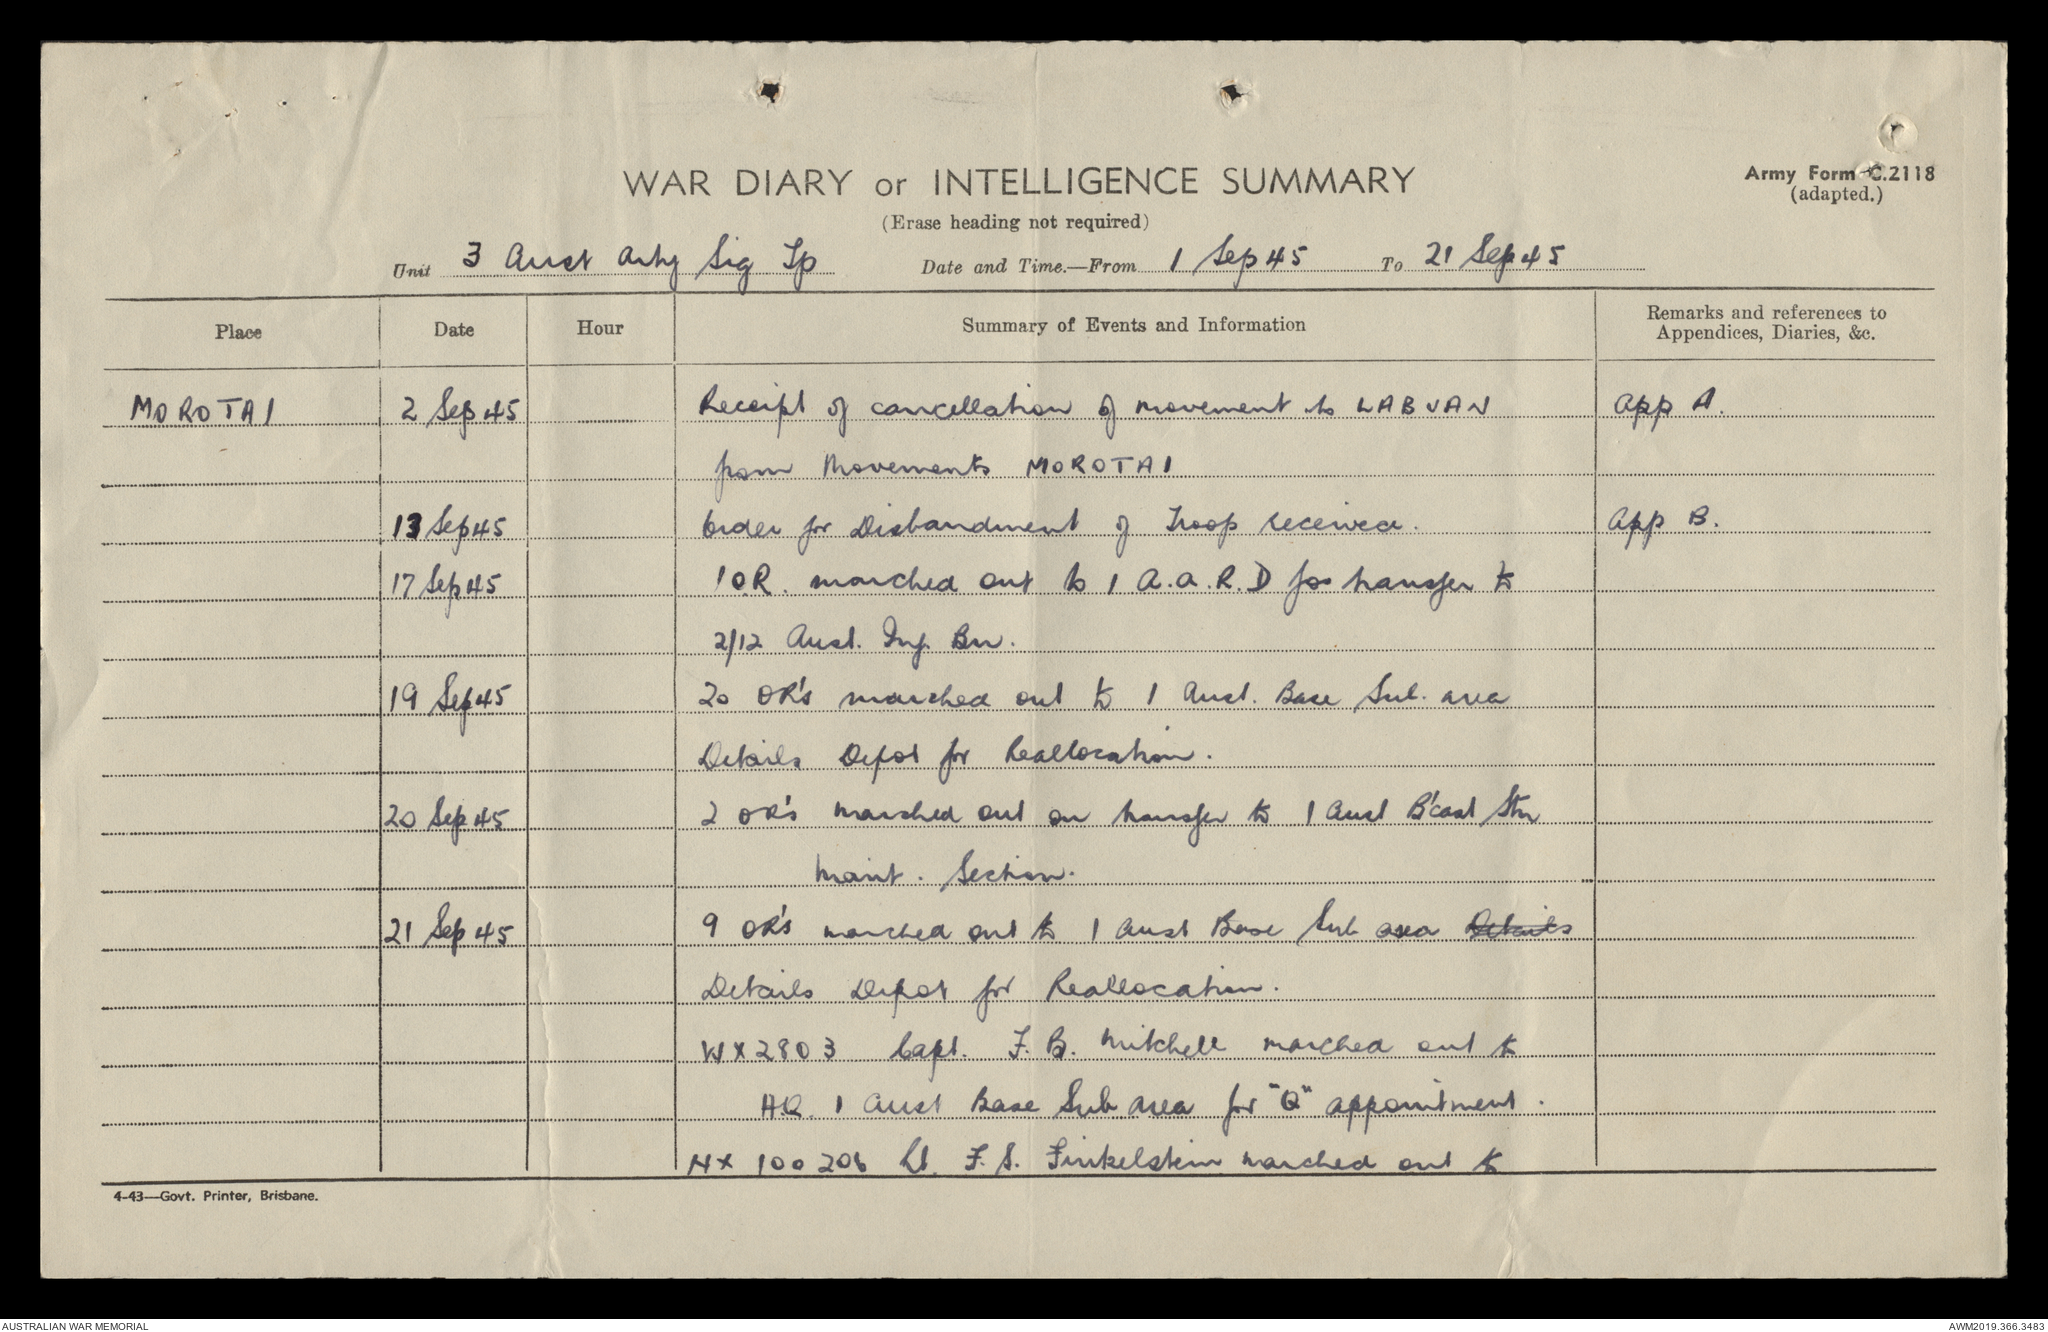 WAR DIARY or INTELLIGENCE SUMMARY
Army Form C.2118
(adapted.)
(Erase heading not required)
Unit 3 Aust Arty Sig Tp Date and Time.—From 1 Sep 45 To 21 Sep 45
Place Date Hour Summary of Events and Information Remarks and references to Appendices, Diaries, &c.
MOROTAI 2 Sep 45 Receipt of cancellation of movement to LABUAN App A.
from Movements MOROTAI
13 Sep 45 Order for Disbandment of Troop received. App B.
17 Sep 45 1 OR. marched out to 1 A.A.R.D for transfer to
2/12 Aust. Inf. Bn.
19 Sep 45 20 OR's marched out to 1 Aust. Base Sub. area
Details Depot for Reallocation.
20 Sep 45 2 OR's marched out on transfer to 1 Aust B'cast Stn
Maint. Section.
21 Sep 45 9 OR's marched out to 1 Aust Base Sub area Details
Details Depot for Reallocation.
WX2803 Capt. F.B. Mitchell marched out to
HQ. 1 Aust Base Sub area for "Q" appointment.
NX 100206 Lt. F.S. Finkelstein marched out to
4-43—Govt. Printer, Brisbane.
AUSTRALIAN WAR MEMORIAL
AWM2019.366.3483